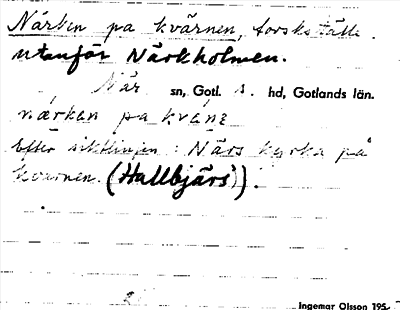 Närken pa kvärnen, torskställe
utanför Närkholmen.
När sn, Gotl. s. hd, Gotlands län.
närken pa kvenɛ
Efter siktlinjen: Närs kyrka på
kvarnen. (Hallbjärs)).
Ingemar Olsson 195